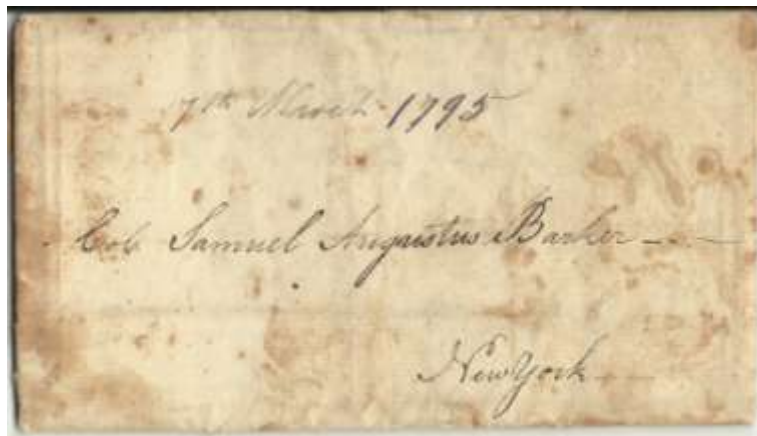 7th March 1795
Col. Samuel Augustus Barker
New York